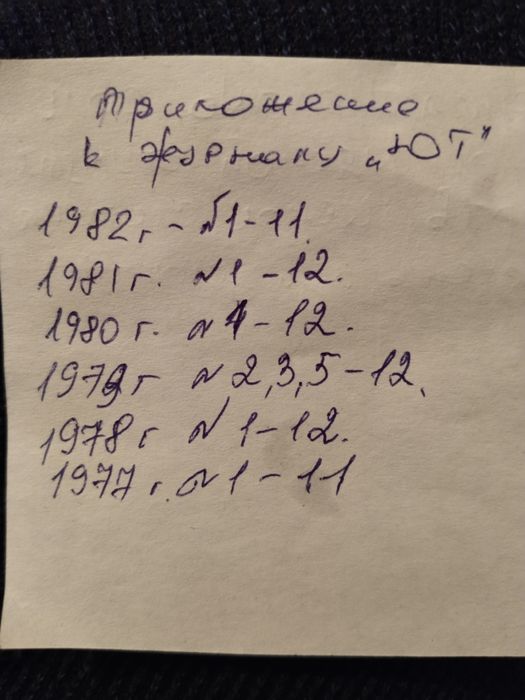 Приложение
к журналу „ЮТ"
1982 г. - №1-11.
1981 г. №1 - 12.
1980 г. №1 - 12.
1979 г №2,3,5-12.
1978 г №1-12.
1977 г. №1-11